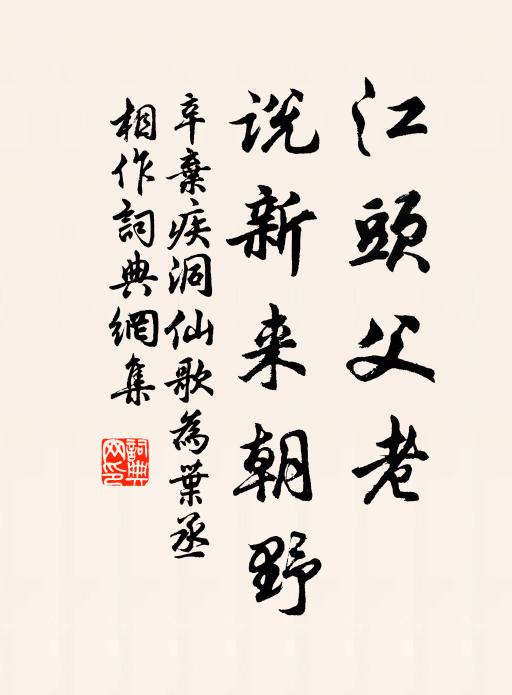 江頭父老
説新来朝野
辛棄疾洞仙歌為葉丞
相作詞典網集
詞典
网印